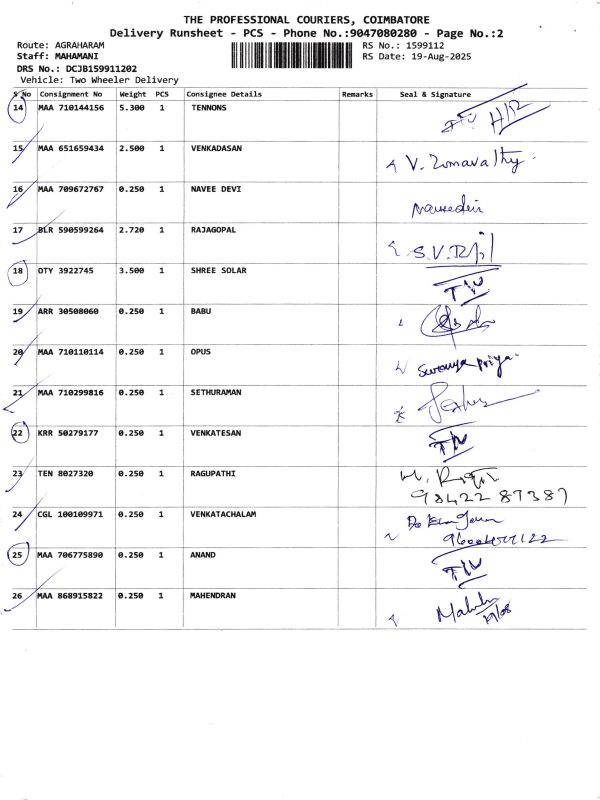 THE PROFESSIONAL COURIERS, COIMBATORE
Delivery Runsheet - PCS - Phone No.:9047080280 - Page No.:2
Route: AGRAHARAM RS No.: 1599112
Staff: MAHAMANI RS Date: 19-Aug-2025
DRS No.: DCJB159911202
Vehicle: Two Wheeler Delivery
S No Consignment No Weight PCS Consignee Details Remarks Seal & Signature
14 MAA 710144156 5.300 1 TENNONS
15 MAA 651659434 2.500 1 VENKADASAN V.
16 MAA 709672767 0.250 1 NAVEE DEVI
17 BLR 590599264 2.720 1 RAJAGOPAL S.V.
18 OTY 3922745 3.500 1 SHREE SOLAR
19 ARR 30508060 0.250 1 BABU
20 MAA 710110114 0.250 1 OPUS Priya
21 MAA 710299816 0.250 1 SETHURAMAN
22 KRR 50279177 0.250 1 VENKATESAN
23 TEN 8027320 0.250 1 RAGUPATHI
98422 87387
24 CGL 100109971 0.250 1 VENKATACHALAM
25 MAA 706775890 0.250 1 ANAND
26 MAA 868915822 0.250 1 MAHENDRAN